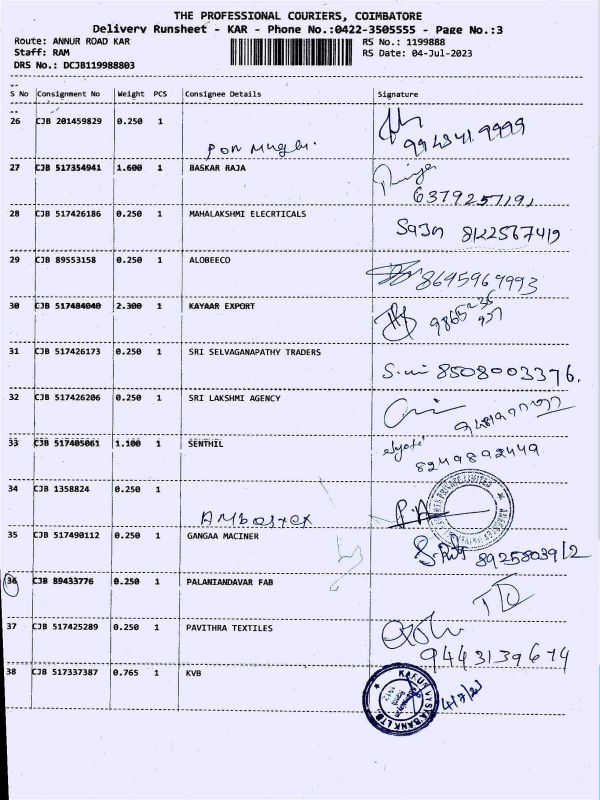 THE PROFESSIONAL COURIERS, COIMBATORE
Delivery Runsheet - KAR - Phone No.:0422-3505555 - Page No.:3
Route: ANNUR ROAD KAR RS No.: 1199888
Staff: RAM RS Date: 04-Jul-2023
DRS No.: DCJB119988803
S No Consignment No Weight PCS Consignee Details Signature
26 CJB 201459829 0.250 1
9943419999
27 CJB 517354941 1.600 1 BASKAR RAJA
6379257191
28 CJB 517426186 0.250 1 MAHALAKSHMI ELECRTICALS
8122567419
29 CJB 89553158 0.250 1 ALOBEECO
8695969993
30 CJB 517484040 2.300 1 KAYAAR EXPORT
31 CJB 517426173 0.250 1 SRI SELVAGANAPATHY TRADERS
8508003376.
32 CJB 517426206 0.250 1 SRI LAKSHMI AGENCY
33 CJB 517405061 1.100 1 SENTHIL
8249892449
34 CJB 1358824 0.250 1
35 CJB 517490112 0.250 1 GANGAA MACINER
8925803912
36 CJB 89433776 0.250 1 PALANIANDAVAR FAB
37 CJB 517425289 0.250 1 PAVITHRA TEXTILES
9443139674
38 CJB 517337387 0.765 1 KVB
KARUR VYSYA BANK LTD.
4/7/23